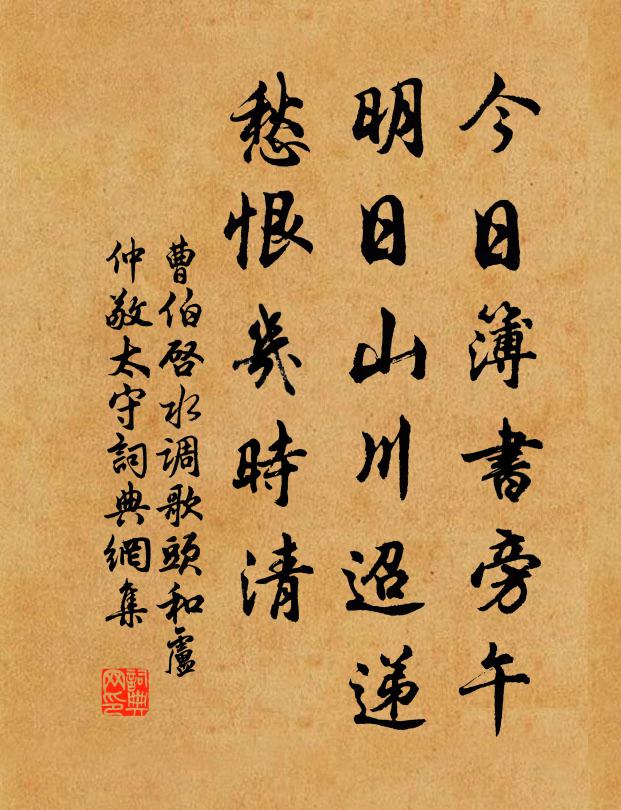 今日簿書旁午
明日山川迢递
愁恨幾時清
曹伯啓水调歌頭和盧
仲敬太守詞典網集
詞典网印